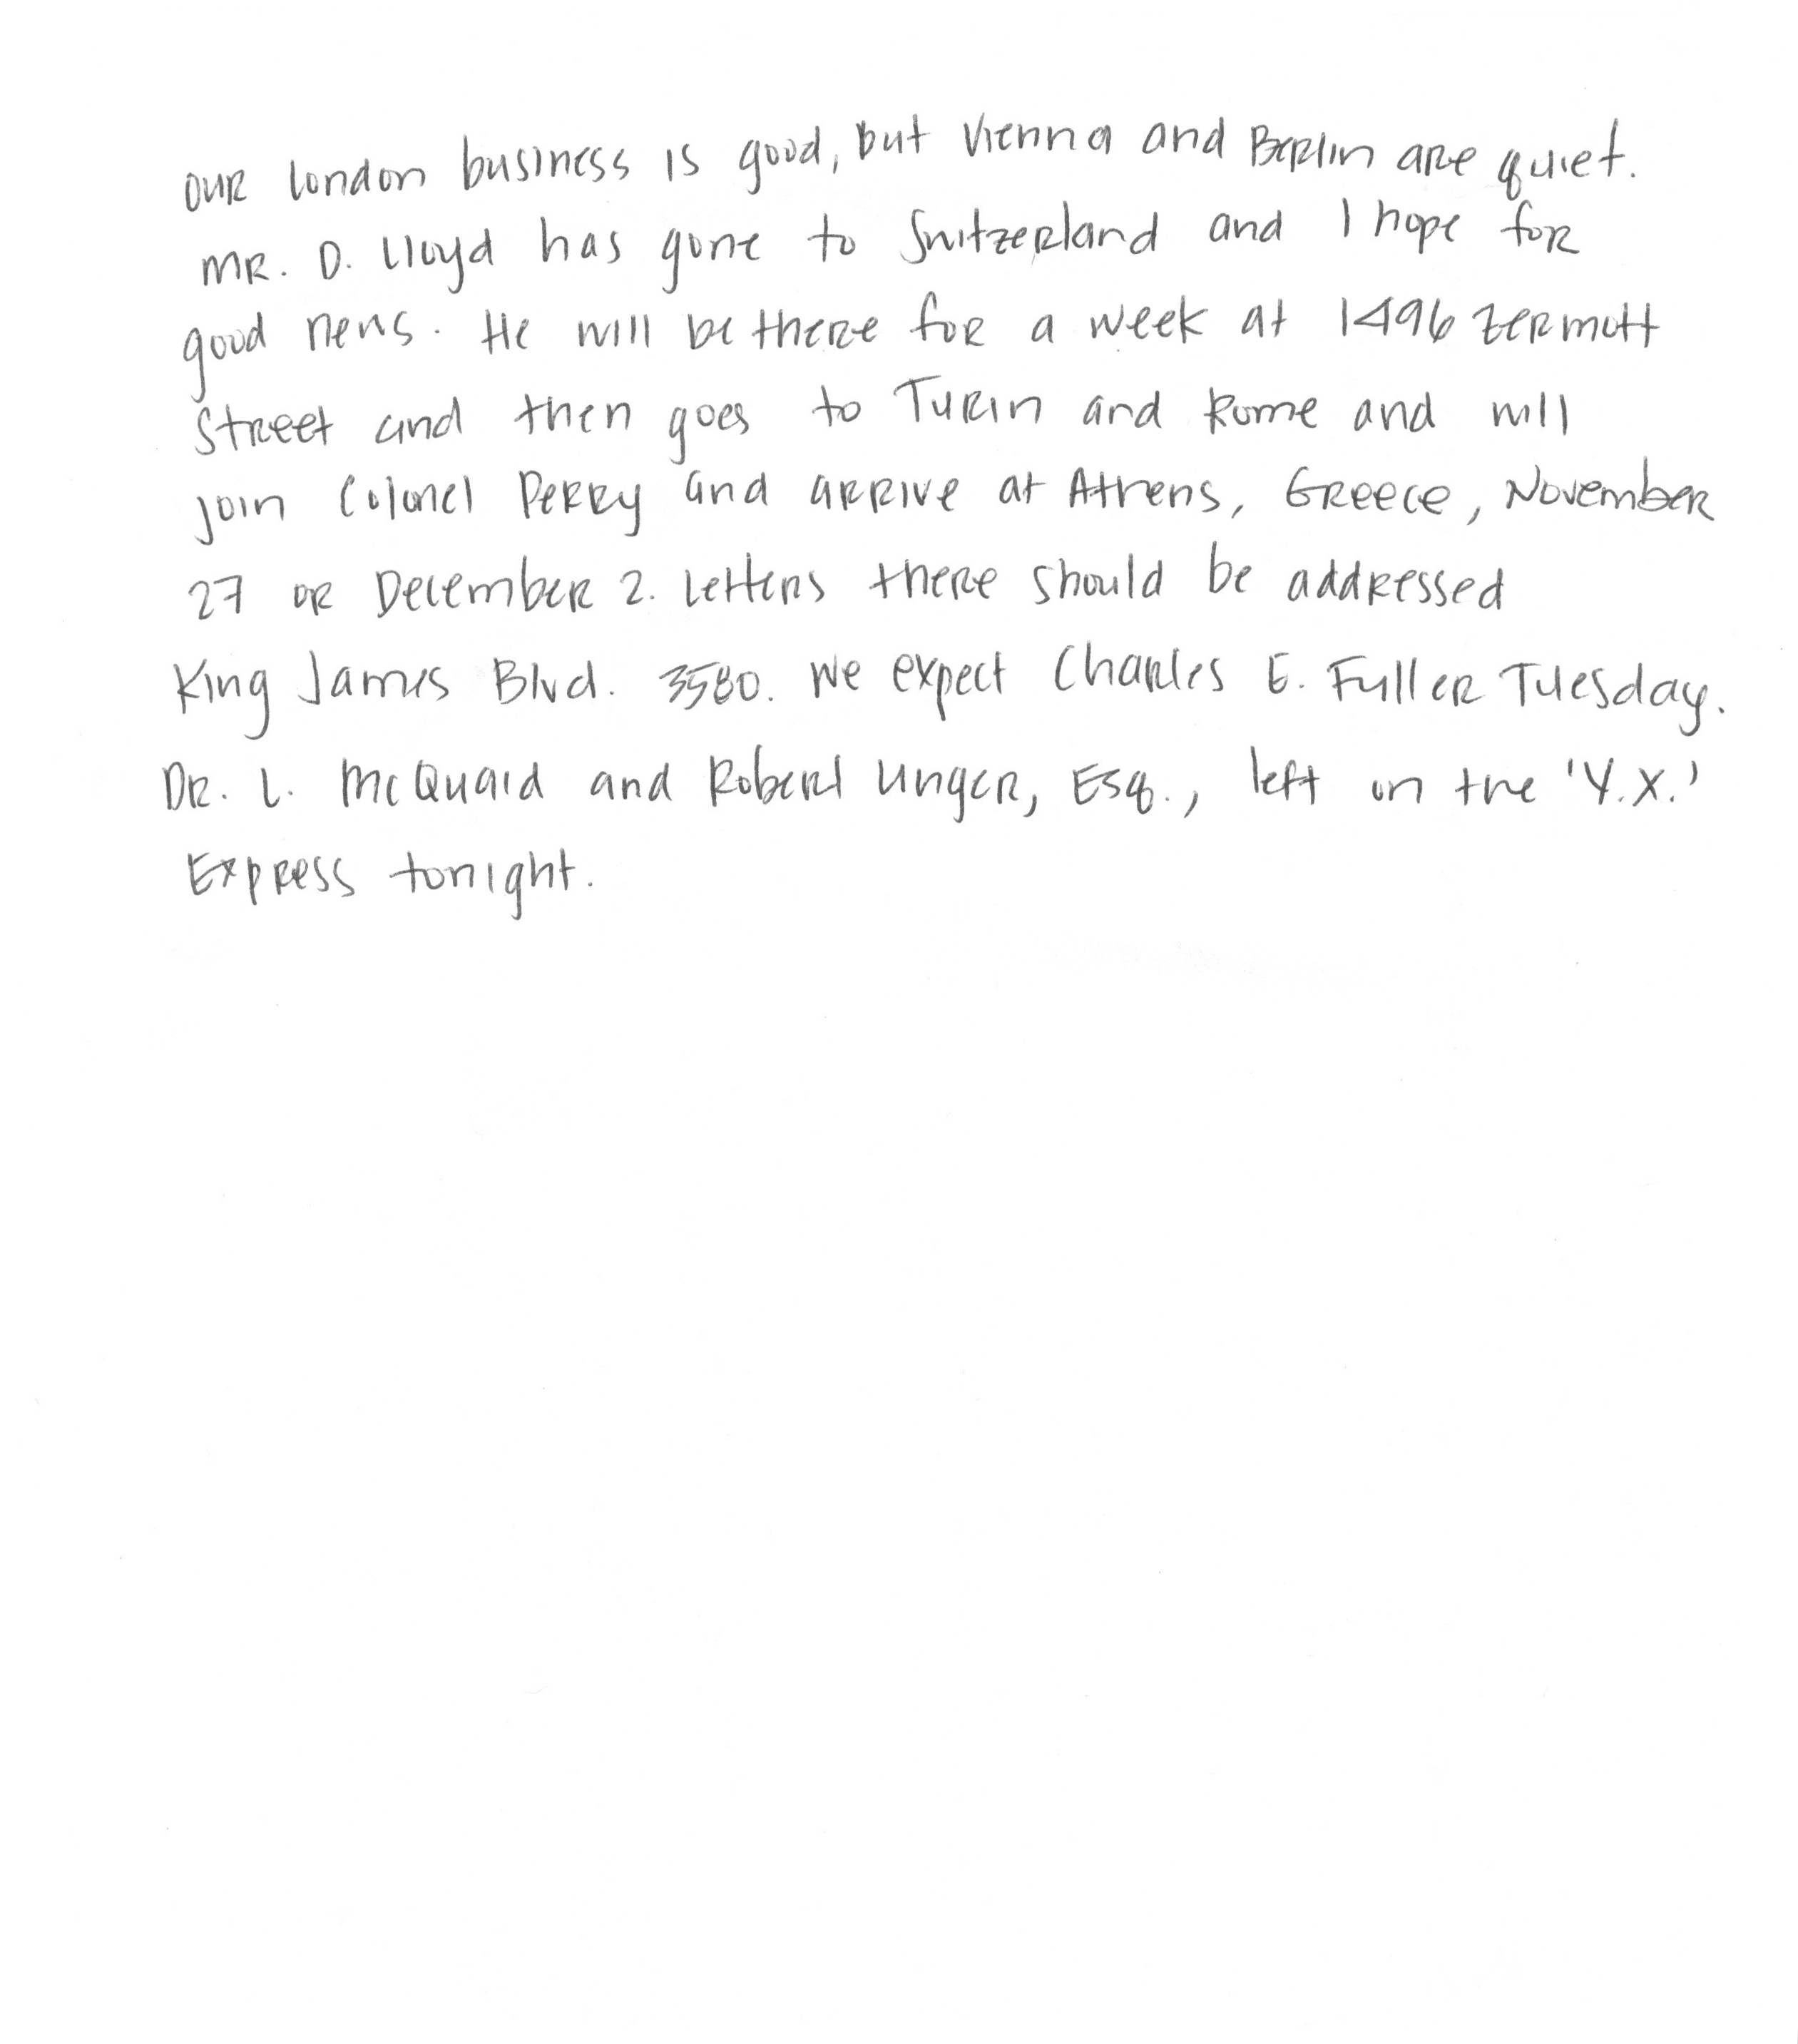 Our London business is good, but Vienna and Berlin are quiet.
Mr. D. Lloyd has gone to Switzerland and I hope for
good news. He will be there for a week at 1496 Zermott
Street and then goes to Turin and Rome and will
join Colonel Perry and arrive at Athens, Greece, November
27 or December 2. Letters there should be addressed
King James Blvd. 3580. We expect Charles E. Fuller Tuesday.
Dr. L. McQuaid and Robert Unger, Esq., left on the 'Y.X.'
Express tonight.